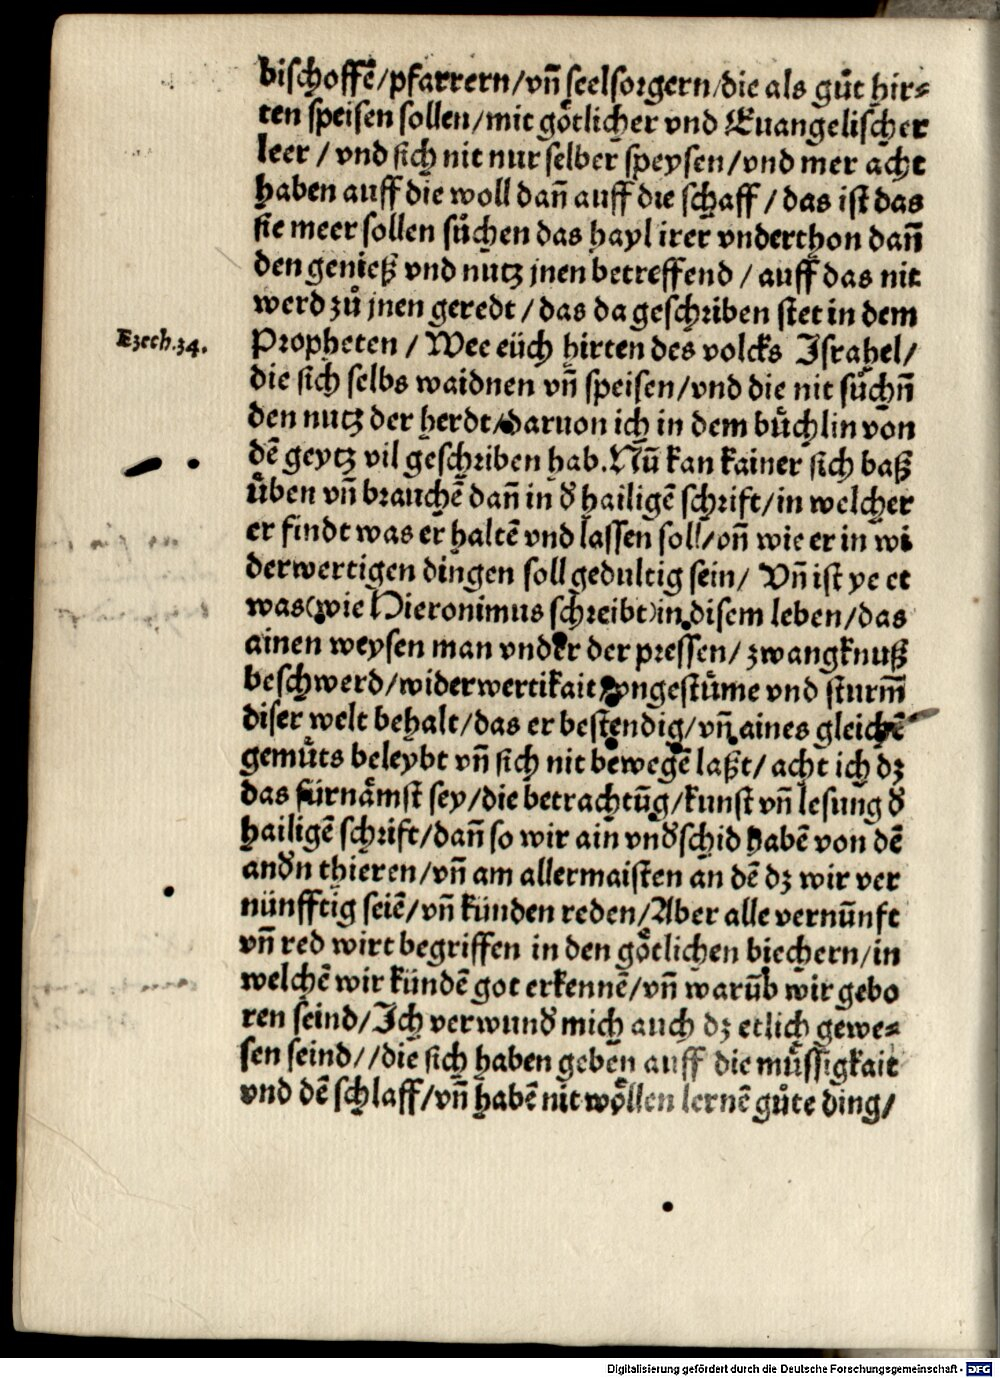 bischoffẽ/pfarrern/vñ seelsorgern/die als gůt hir⸗
ten speisen sollen/mit gỏtlicher vnd Euangelischer
leer / vnd sich nit nur selber speysen/vnd mer acht
haben auff die woll dañ auff die schaff / das ist das
sie meer sollen sůchen das hayl irer vnderthon dañ
den genieß vnd nutz jnen betreffend / auff das nit
werd zů jnen geredt / das da geschriben stet in dem
Ezech.34. Propheten / Wee eüch hirten des volcks Israhel/
die sich selbs waidnen vñ speisen/vnd die nit sůchñ
den nutz der herdt/Daruon ich in dem bůchlin von
dẽ geytz vil geschriben hab. Nũ kan kainer sich baß
ůben vñ brauchẽ dañ in d̕ hailigẽ schrift/in welcher
er findt was er haltẽ vnd lassen soll/vñ wie er in wi
derwertigen dingen soll gedultig sein/ Vñ ist ye et
was(wie Hieronimus schreibt)in disem leben/das
ainen weysen man vnder der pressen/ zwangknuß
beschwerd/widerwertikait vngestüme vnd sturm̃
diser welt behalt/das er bestendig/vñ aines gleichẽ
gemůts beleybt vñ sich nit bewegẽ laßt/ acht ich dz
das fürnåmst sey/die betrachtũg/kunst vñ lesung d̕
hailigẽ schrift/dañ so wir ain vnd̕schid habẽ von dẽ
and̕n thieren/vñ am allermaisten an dẽ dz wir ver
nünfftig seiẽ/vñ künden reden/Aber alle vernũnft
vñ red wirt begriffen in den gỏtlichen biechern/in
welchẽ wir kündẽ got erkennẽ/vñ warũb wir gebo
ren seind/Ich verwund̕ mich auch dz etlich gewe⸗
sen seind//die sich haben geben auff die můssigkait
vnd dẽ schlaff/vñ habẽ nit wỏllen lernẽ gůte ding/
Digitalisierung gefördert durch die Deutsche Forschungsgemeinschaft - DFG